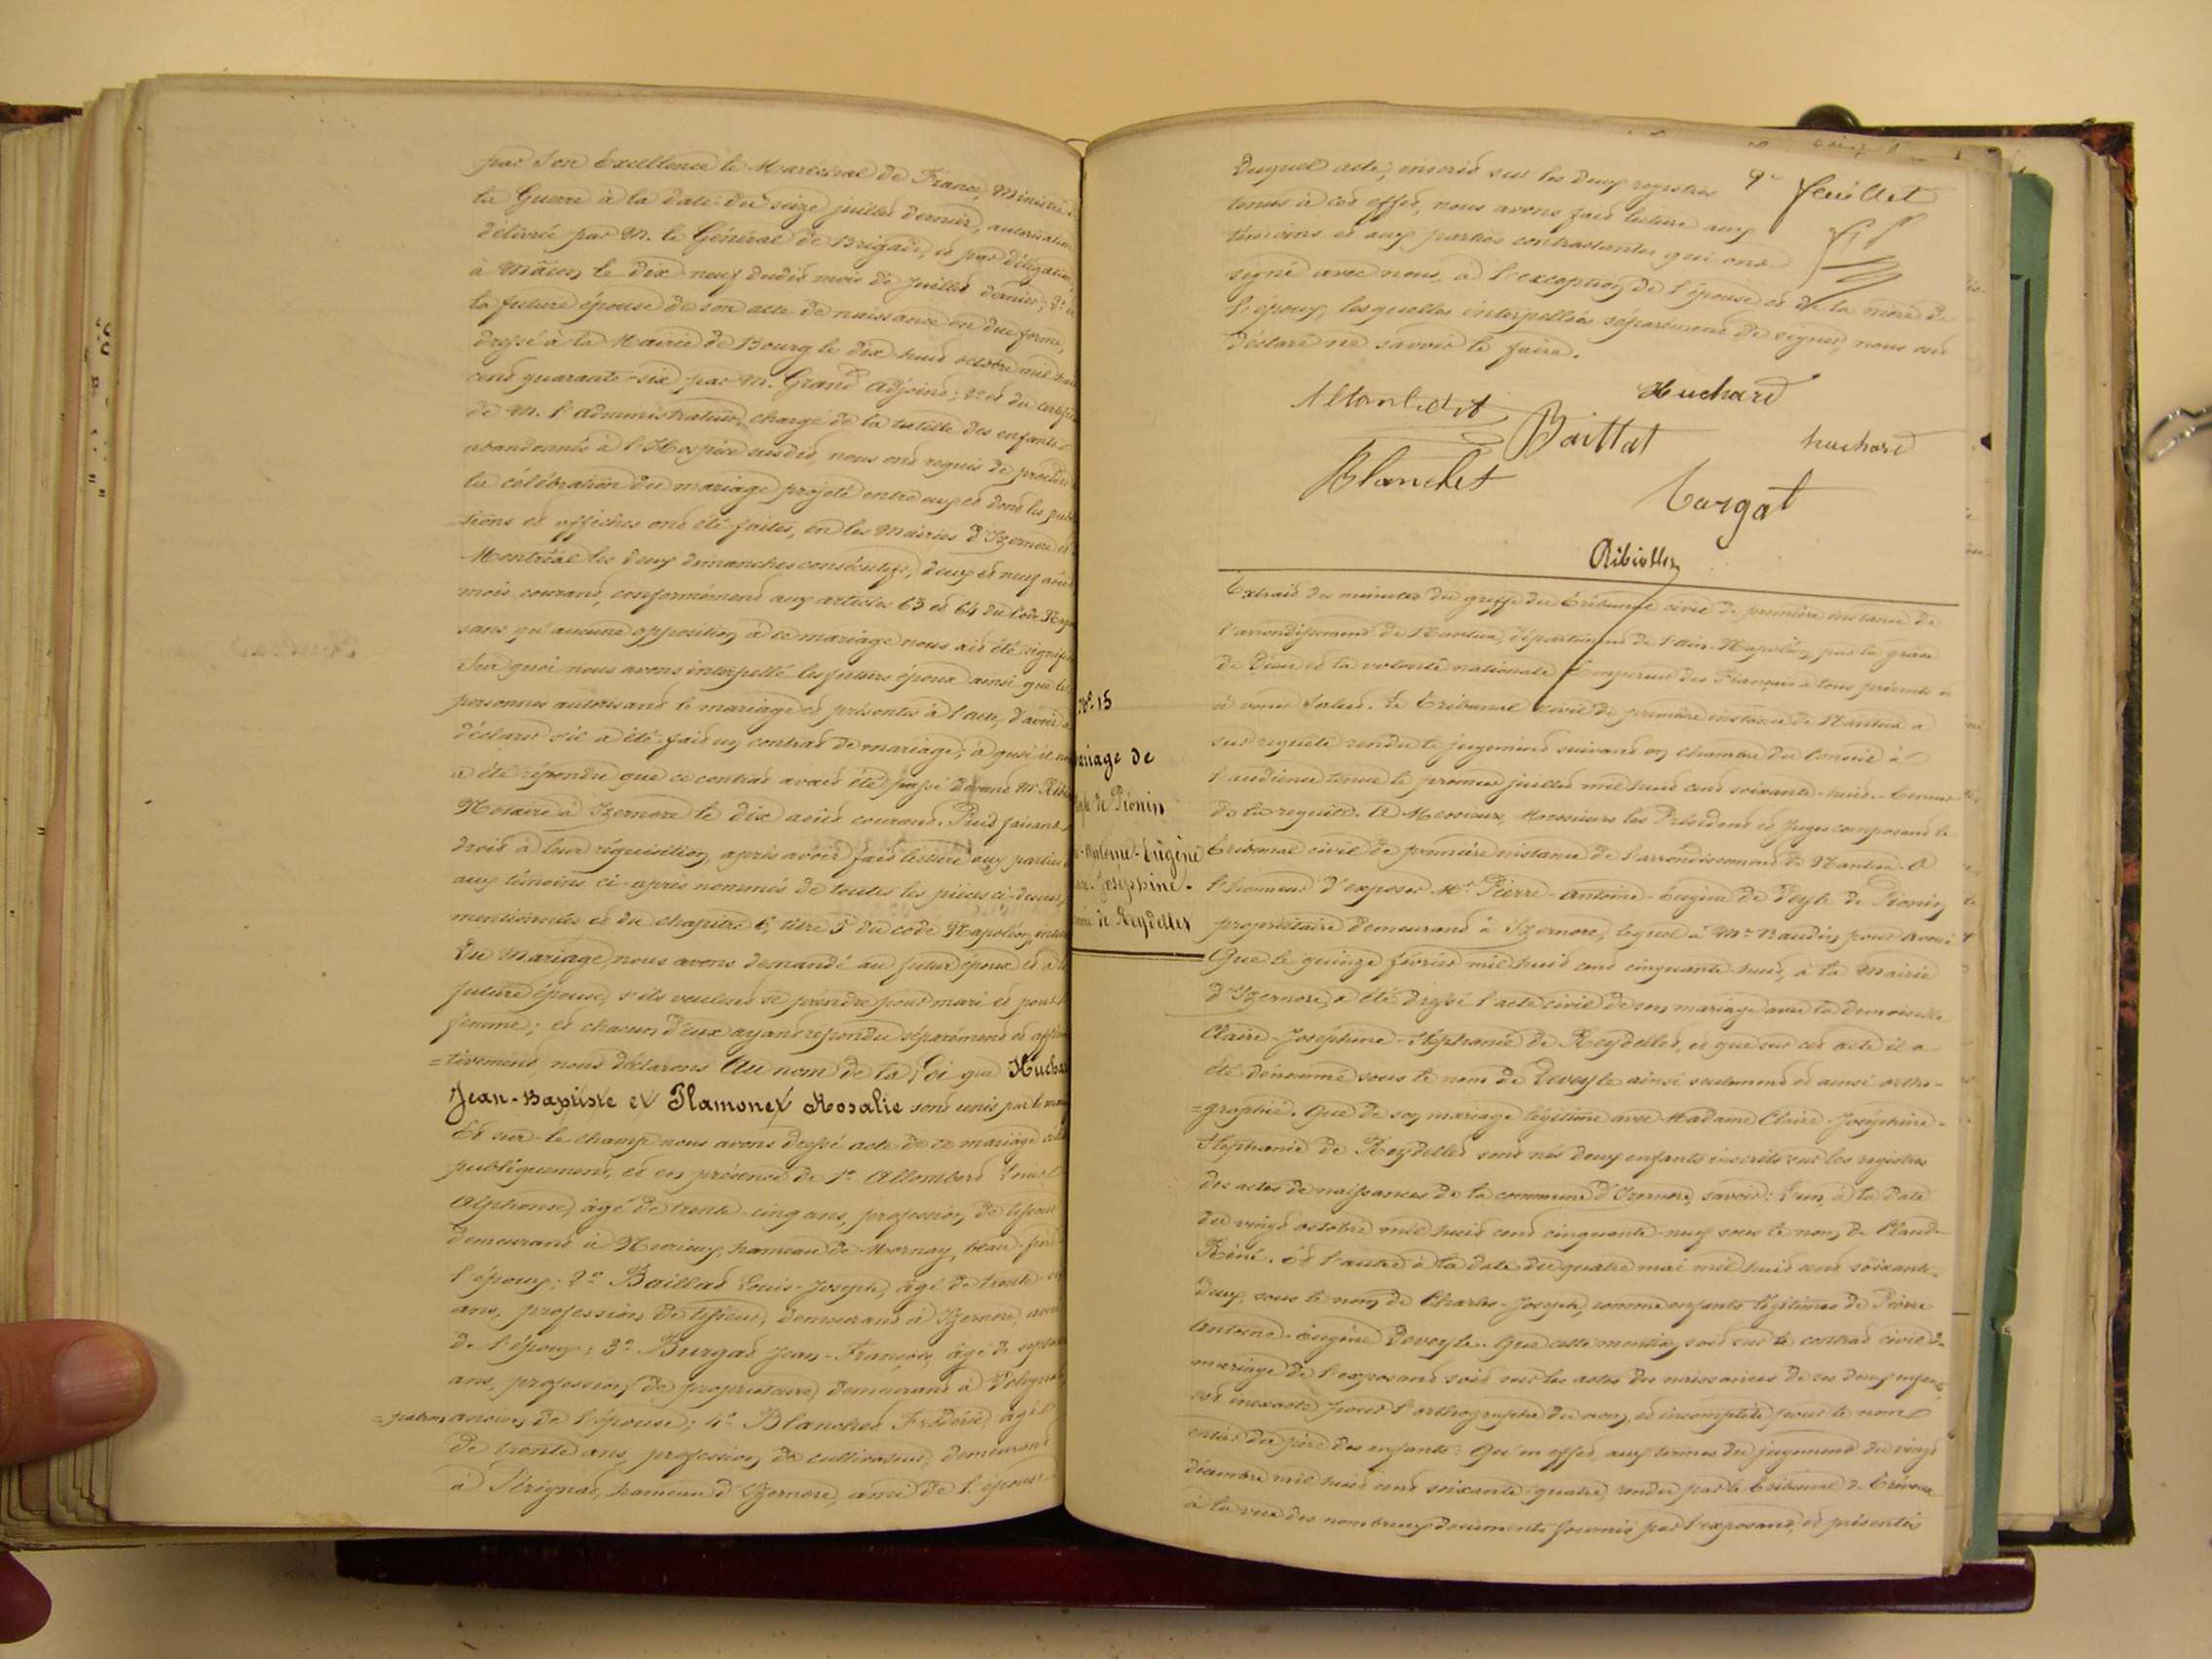 par Son Excellence le Maréchal de France, Ministre de
la Guerre à la date du seize juillet dernier, autorisation
délivrée par M. le Général de Brigade, et par délégation,
à Mâcon, le dix-neuf dudit mois de juillet dernier; 2º
la future épouse de son acte de naissance en due forme,
dressé à la Mairie de Bourg le dix-huit octobre mil huit
cent quarante-six par M. Grand adjoint; 2º et du certificat
de M. l'administrateur, chargé de la tutelle des enfants
abandonnés à l'Hospice susdit, nous ont requis de procéder
la célébration du mariage projeté entre eux et dont les publi
tions et affiches ont été faites, en les Mairies d'Izernore et
Montréal les deux dimanches consécutifs, deux et neuf août
mois courant, conformément aux articles 63 et 64 du Code Nap
sans qu'aucune opposition à ce mariage nous ait été signifiée
Sur quoi nous avons interpellé les futurs époux ainsi que les
personnes autorisant le mariage et présentes à l'acte, d'avoir à
déclarer s'il a été fait un contrat de mariage; à quoi il nous
a été répondu que ce contrat avait été passé devant Mr. Ribi
Notaire à Izernore le dix août courant. Puis faisant
droit à leur réquisition, après avoir fait lecture aux parties
aux témoins ci-après nommés de toutes les pièces ci-dessus
mentionnées et du chapitre 6, titre 5 du code Napoléon, intitulé
Du Mariage, nous avons demandé au futur époux et à la
future épouse, s'ils veulent se prendre pour mari et pour
femme; et chacun d'eux ayant répondu séparément et affirma
=tivement, nous déclarons Au nom de la Loi que Huchard
Jean-Baptiste et Plamonet Rosalie sont unis par le mariage
Et sur-le-champ nous avons dressé acte de ce mariage célébré
publiquement, et en présence de 1º Allombert Louis
Alphonse, âgé de trente-cinq ans, profession de tisseur
demeurant à Heyrieux, hameau de Mornay, beau-frère
l'époux; 2º Baillat Louis-Joseph, âgé de trente-
ans, profession de tisseur, demeurant à Izernore, ami
de l'époux; 3º Burgat Jean-François, âgé de
ans, profession de propriétaire, demeurant à Volognat
=patron ancien de l'épouse; 4º Blanchet Frédéric, âgé
de trente ans, profession de cultivateur, demeurant
à Pérignat, hameau d'Izernore, ami de l'épouse
9e feuillet
Duquel acte, inscrit sur les deux registres
tenus à cet effet, nous avons fait lecture aux
témoins et aux parties contractantes qui ont
signé avec nous, à l'exception de l'épouse et de la mère de
l'époux, lesquelles interpellées séparément de signer, nous ont
déclaré ne savoir le faire.
Allombert Huchard
Baillat huchard
Blanchet Burgat
Ribiollet
Nº 15
ariage de
Veyle de Pionin
e-Antoine-Eugène
Claire-Joséphine-
anie de Reydellet
Extrait des minutes du greffe du Tribunal civil de première instance de
l'arrondissement de Nantua, département de l'Ain. Napoléon, par la grâce
de Dieu et la volonté nationale Empereur des Français à tous présents et
à venir Salut. Le Tribunal civil de première instance de Nantua a
sur requête rendu le jugement suivant en Chambre du Conseil à
l'audience tenue le premier juillet mil huit cent soixante-huit. Teneur
de la requête. A Messieurs, Messieurs les Président et Juges composant le
Tribunal civil de première instance de l'arrondissement de Nantua. A
l'honneur d'exposer Mr Pierre-Antoine-Eugène de Veyle de Pionin
propriétaire demeurant à Izernore, lequel a Me Baudin pour avoué
Que le quinze février mil huit cent cinquante-huit, à la Mairie
d'Izernore, a été dressé l'acte civil de son mariage avec la demoiselle
Claire-Joséphine-Stéphanie de Reydellet, et que sur cet acte il a
été dénommé sous le nom de Deveyle ainsi seulement et ainsi ortho-
=graphié. Que de son mariage légitime avec Madame Claire-Joséphine-
Stéphanie de Reydellet sont nés deux enfants inscrits sur les registres
des actes de naissances de la commune d'Izernore, savoir: L'un, à la date
du vingt octobre mil huit cent cinquante-neuf sous le nom de Claude
Réné. Et l'autre à la date du quatre mai mil huit cent soixante-
deux, sous le nom de Charles-Joseph, comme enfants légitimes de Pierre
Antoine-Eugène Deveyle. Que cette mention, soit sur le contrat civil de
mariage de l'exposant, soit sur les actes des naissances de ses deux enfants
est inexacte pour l'orthographe du nom, et incomplète pour le nom
entier du père des enfants: Qu'en effet, aux termes du jugement du vingt
décembre mil huit cent soixante-quatre, rendu par le Tribunal de Trévoux
à la vue des nombreux documents fournis par l'exposant, et présentés